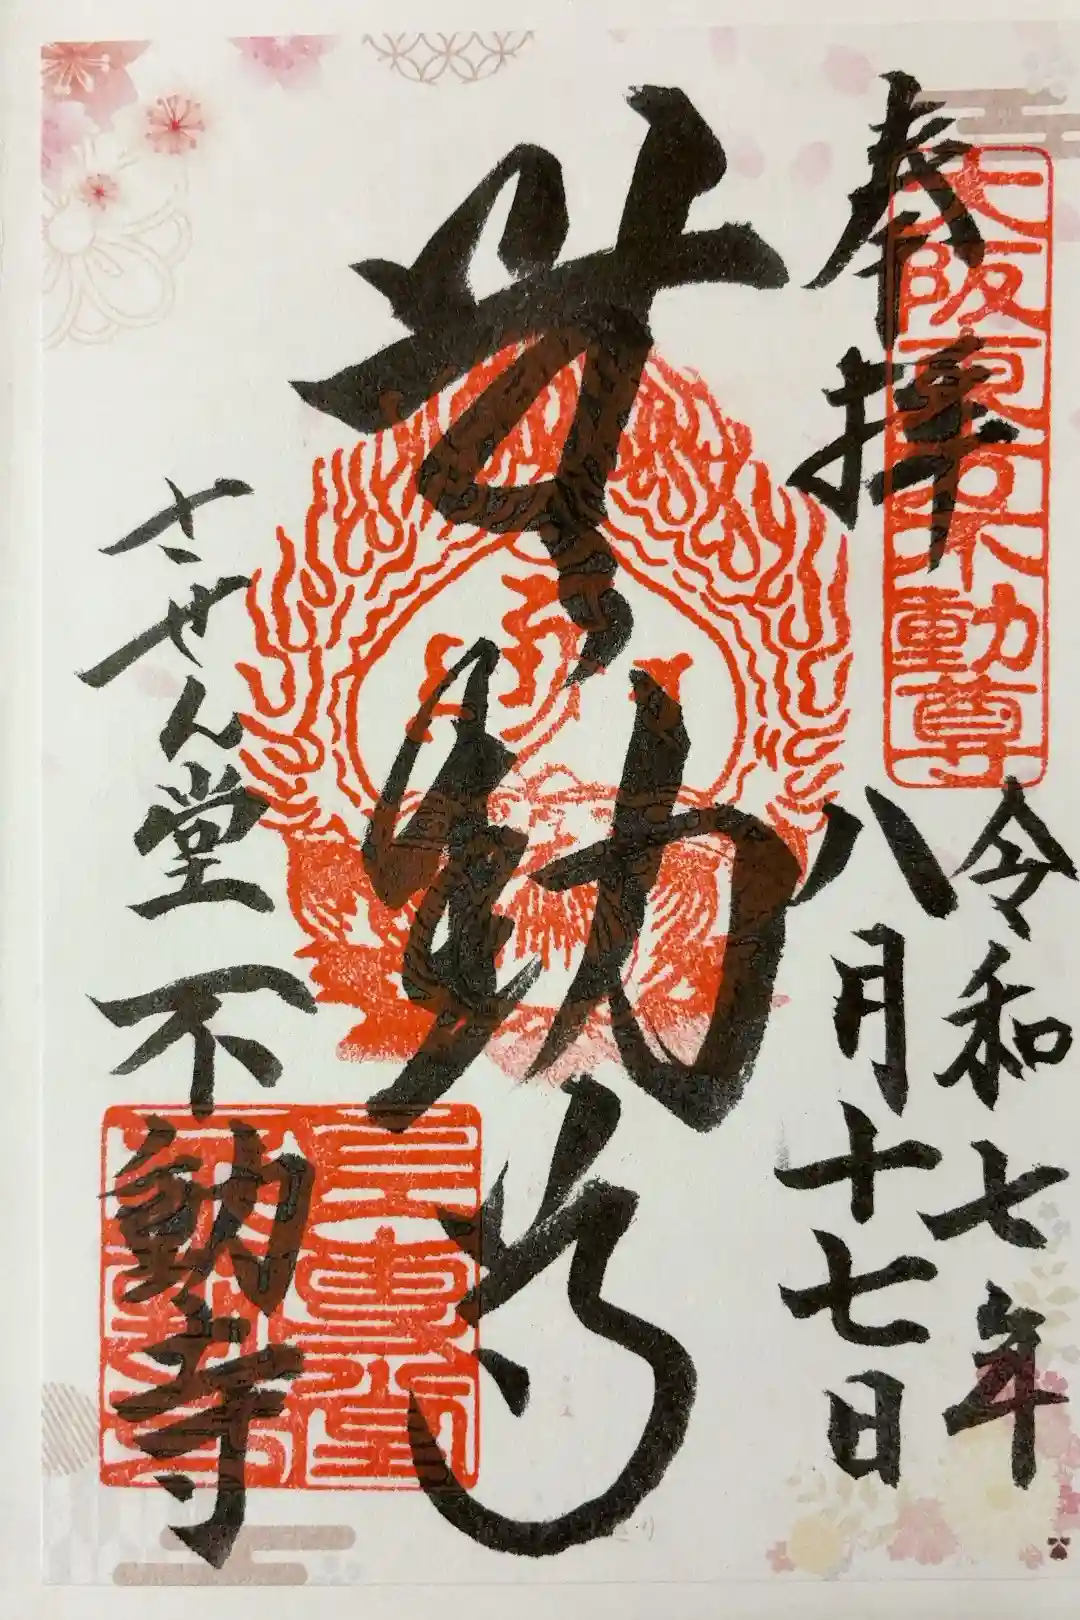 奉拝
大阪
不動尊
令和七年
八月十七日
動尊
させん堂不動寺